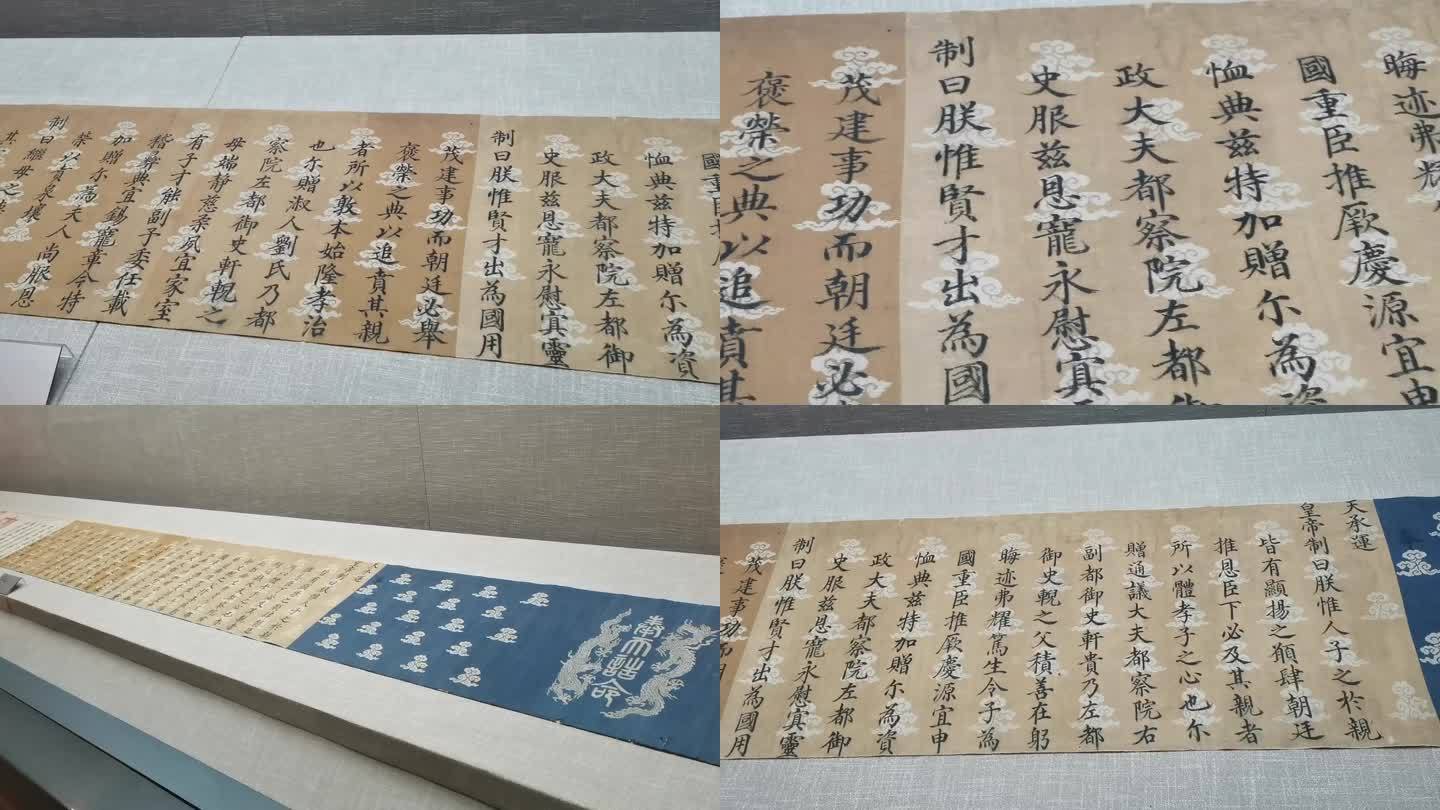 國重
恤典兹特加贈尔為資
政大夫都察院左都御
史服兹恩寵永慰寘靈
制曰朕惟賢才出為國用
茂建事功而朝廷必舉
褒榮之典以追賁其親
者所以敦本始隆孝治
也尔贈淑人劉氏乃都
察院左都御史軒輗之
母端静慈柔夙宜家室
有子才能副予委任載
稽彝典宜錫寵章今特
加贈尔為夫人尚服恩
榮以賁泉壤
制曰繼母之
晦迹弗耀
國重臣推厥慶源宜申
恤典兹特加贈尔為資
政大夫都察院左都御
史服兹恩寵永慰寘
制曰朕惟賢才出為國
茂建事功而朝廷必
褒榮之典以追賁其
奉天誥命
天承運
皇帝制曰朕惟人子之於親
皆有顯揚之願肆朝廷
推恩臣下必及其親者
所以體孝子之心也尔
贈通議大夫都察院右
副都御史軒貴乃左都
御史輗之父積善在躬
晦迹弗耀篤生令子為
國重臣推厥慶源宜申
恤典兹特加贈尔為資
政大夫都察院左都御
史服兹恩寵永慰寘靈
制曰朕惟賢才出為國用
茂建事功而